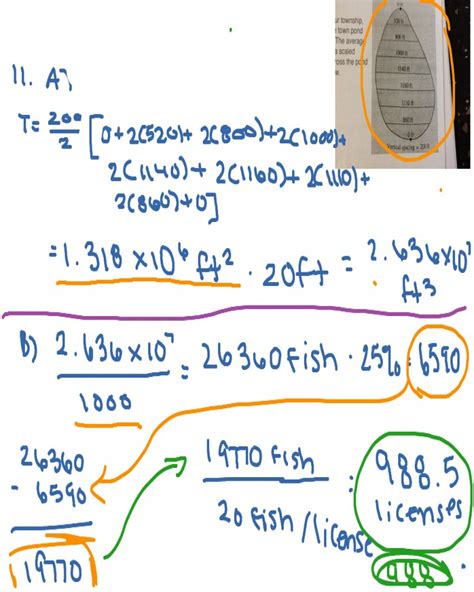 ur township,
town pond
The average
scaled
ross the pond
0 ft
520 ft
800 ft
1000 ft
1140 ft
1160 ft
1110 ft
860 ft
0 ft
Vertical spacing = 200 ft
11. A)
T= 200/2 [0+2(520)+2(800)+2(1000)+
2(1140)+2(1160)+2(1110)+
2(860)+0]
=1.318×10⁶ ft² · 20ft = 2.636×10⁷
ft3
B) 2.636×10⁷/1000 = 26360 fish · 25% = 6590
26360
- 6590
19770
19770 fish
20 fish/license
: 988.5
licenses
988.